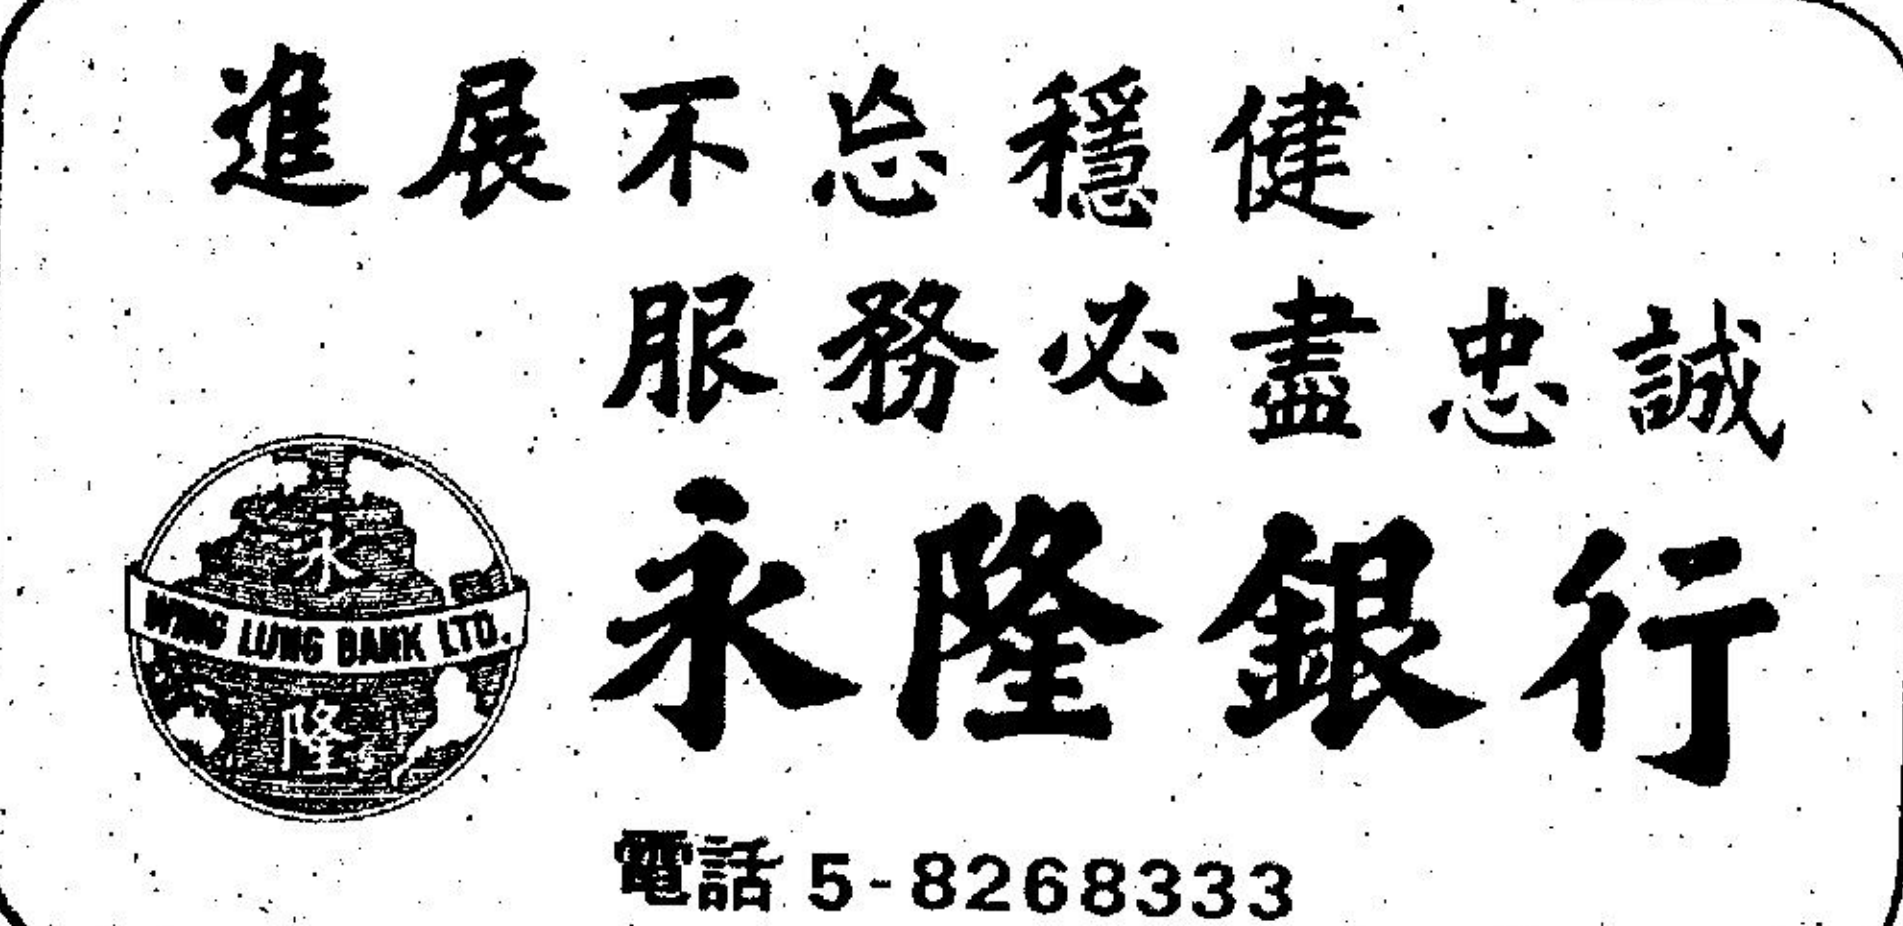 進展不忘穩健
服務必盡忠誠
永
WING LUNG BANK LTD.
隆
永隆銀行
電話 5-8268333